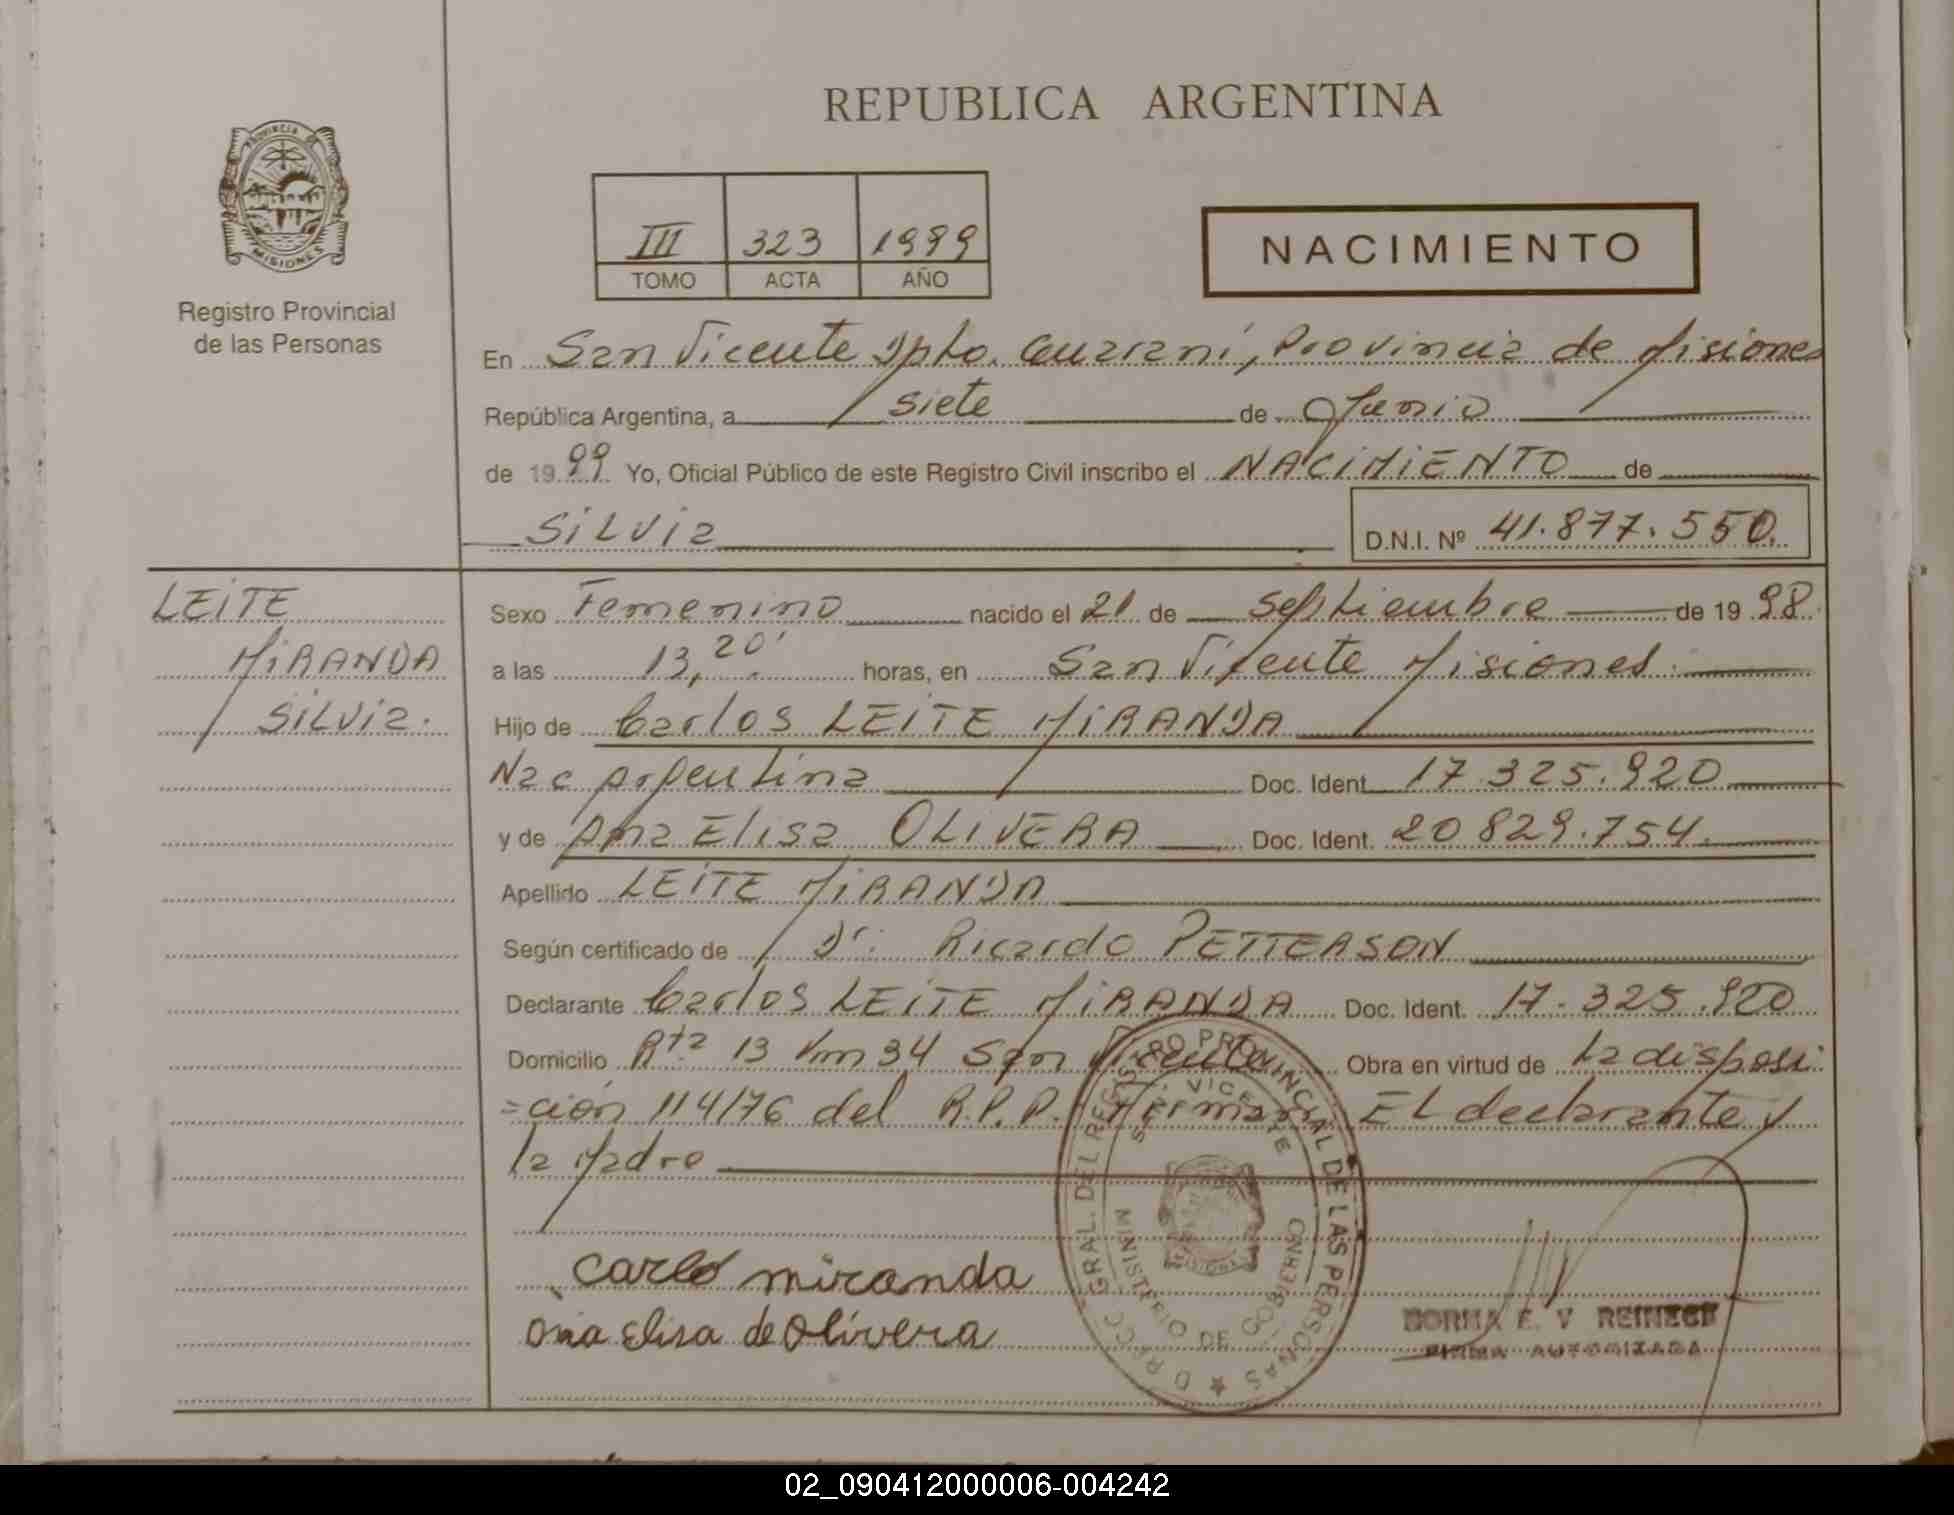 REPUBLICA ARGENTINA
PROVINCIA DE
MISIONES
Registro Provincial
de las Personas
III 323 1999
TOMO ACTA AÑO
NACIMIENTO
En San Vicente Dpto. Guaraní, Provincia de Misiones
República Argentina, a siete de Junio
de 1999 Yo, Oficial Público de este Registro Civil inscribo el NACIMIENTO de
SILVia D.N.I. Nº 41.877.550.
LEITE
MIRANDA
SILVia.
Sexo Femenino nacido el 21 de Septiembre de 1998.
a las 13,20' horas, en San Vicente Misiones.
Hijo de Carlos LEITE MIRANDA
Nac Argentina Doc. Ident. 17.325.920
y de Ana Elisa OLIVERA Doc. Ident. 20.829.754.
Apellido LEITE MIRANDA
Según certificado de Dr. Ricardo PETTERSON
Declarante Carlos LEITE MIRANDA Doc. Ident. 17.325.920
Domicilio Rta 13 Km 34 San Vicente Obra en virtud de la disposi
=ción 114/76 del R.P.P. Firman: El declarante y
la Madre
Carlo miranda
ana Elisa de Olivera
GRAL. DEL REGISTRO PROVINCIAL DE LAS PERSONAS
VICENTE
MINISTERIO DE GOBIERNO
MISIONES
E. V REINECK
FIRMA AUTORIZADA
02_090412000006-004242